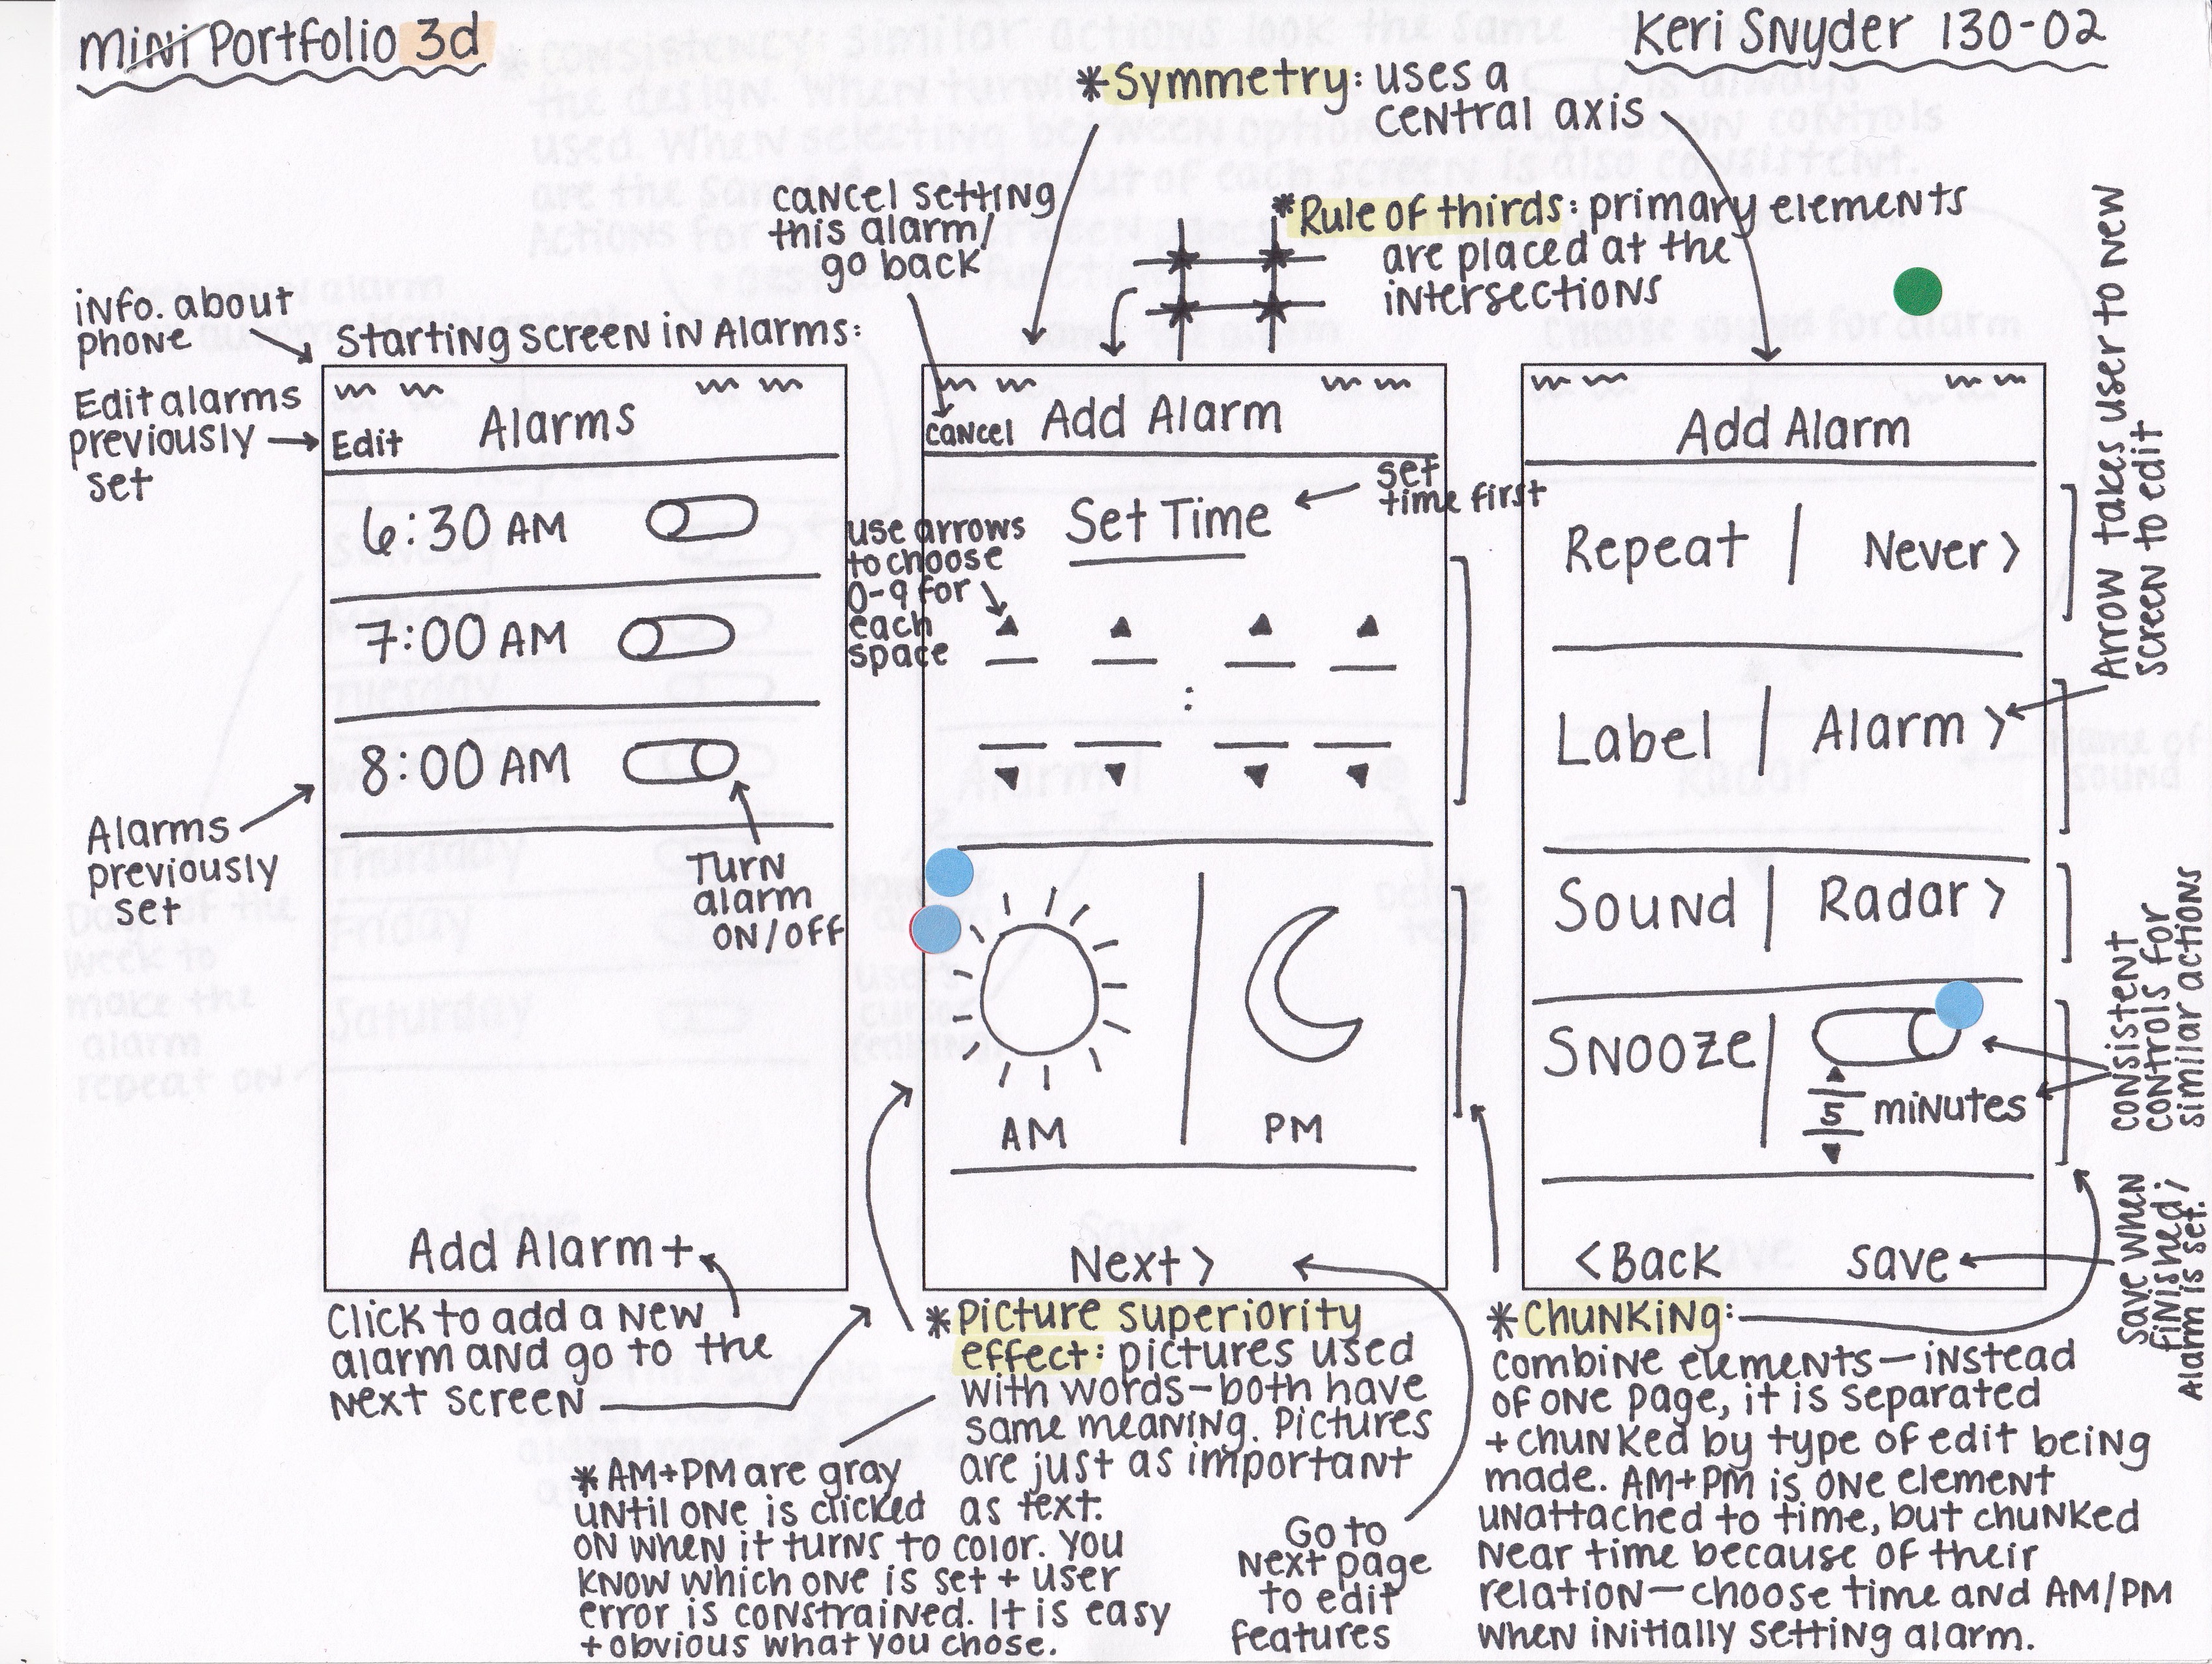 mini Portfolio 3d
Keri Snyder 130-02
*Symmetry: uses a
central axis
cancel setting
this alarm/
go back
*Rule of thirds: primary elements
are placed at the
intersections
info. about
phone
Starting screen in Alarms:
Edit alarms
previously
set
Edit Alarms
6:30 AM
7:00 AM
8:00 AM
Alarms
previously
set
Turn
alarm
on/off
Add Alarm+
Click to add a new
alarm and go to the
next screen
cancel Add Alarm
Set Time
set
time first
use arrows
to choose
0-9 for
each
space
:
AM PM
Next >
*Picture superiority
effect: pictures used
with words—both have
same meaning. Pictures
are just as important
as text.
*AM+PM are gray
until one is clicked
on when it turns to color. You
know which one is set + user
error is constrained. It is easy
+ obvious what you chose.
Go to
next page
to edit
features
Add Alarm
Repeat | Never >
Label | Alarm >
Sound | Radar >
Snooze
5 minutes
< Back save
Arrow takes user to new
screen to edit
consistent
controls for
similar actions
save when
finished/
Alarm is set.
*Chunking:
combine elements—instead
of one page, it is separated
+ chunked by type of edit being
made. AM+PM is one element
unattached to time, but chunked
near time because of their
relation—choose time and AM/PM
when initially setting alarm.